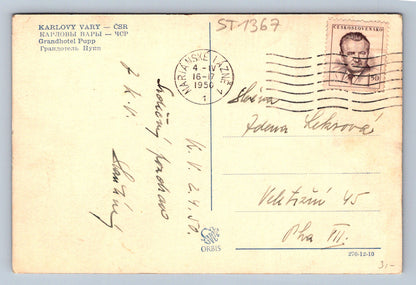 KARLOVY VARY — ČSR
КАРЛОВЫ ВАРЫ — ЧСР
Grandhotel Pupp
Грандотель Пупп
ST-1367
ČESKOSLOVENSKO
MARIÁNSKÉ LÁZNĚ
4-IV
16-17
1950
1
Srdečný pozdrav
z K.V.
K.V. 2.4.50.
Slečna
Zdena
Veletržní 45
Pha VII.
ORBIS
270-12-10
3,-